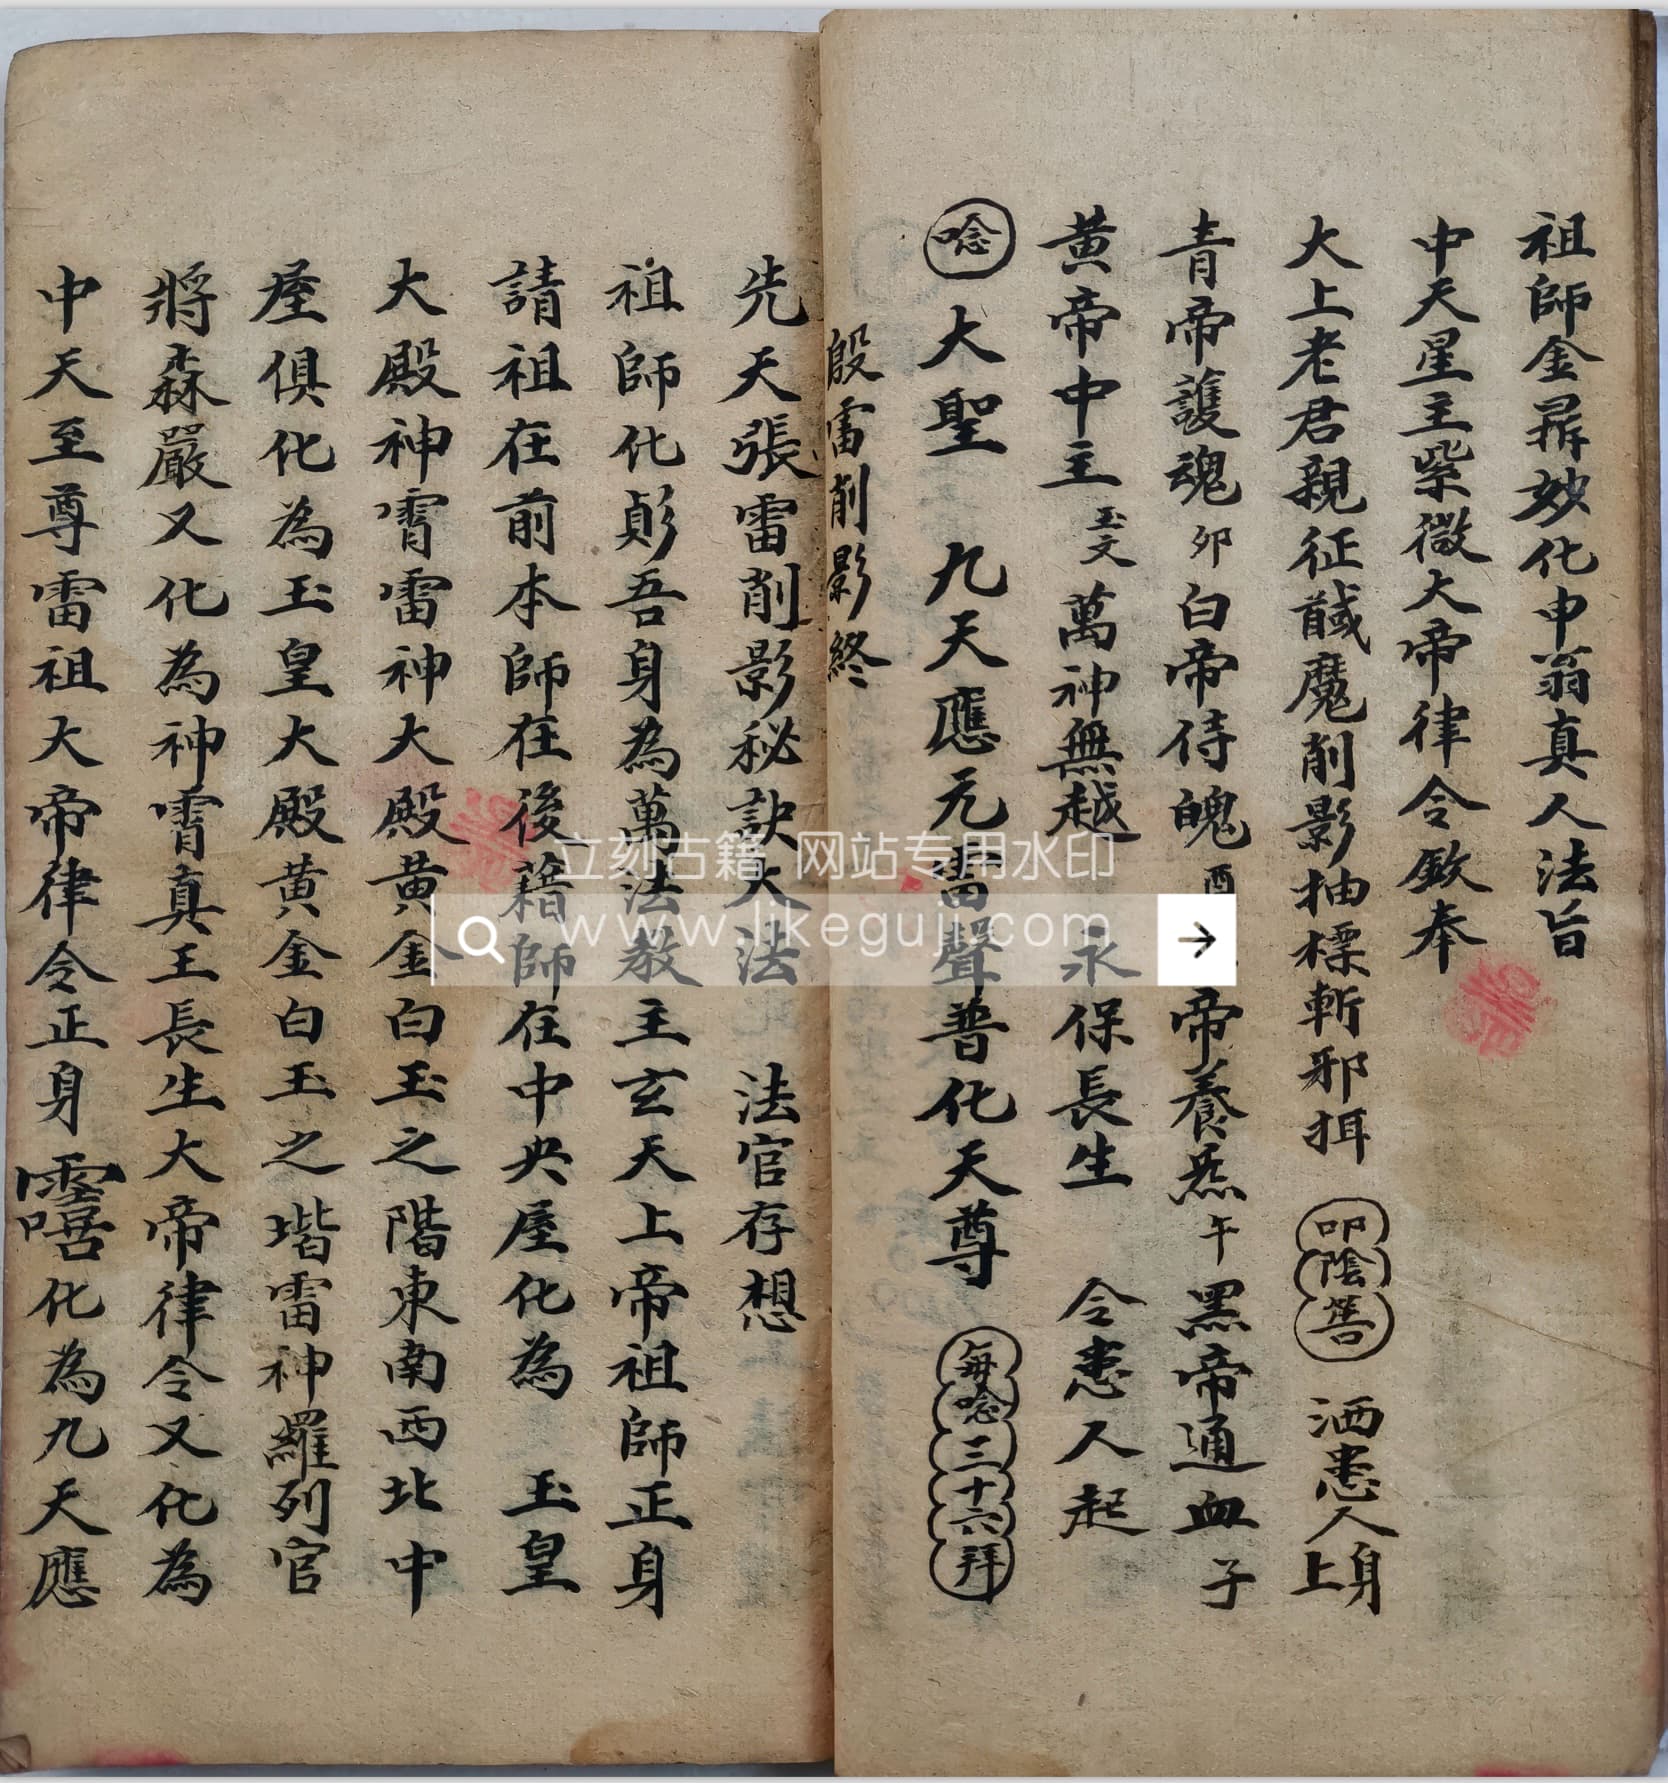 祖師金闕妙化申翁真人法旨
中天星主紫微大帝律令欽奉
大上老君親征馘魔削影抽標斬邪 叩陰筶 洒患人身上
青帝護魂卯白帝侍魄酉 帝養炁午黑帝通血子
黄帝中主玉文萬神無越 永保長生 令患人起
唸 大聖 九天應元雷聲普化天尊 每唸三十六拜
殷雷削影終
先天張雷削影秘訣大法 法官存想
祖師化影吾身為萬法教主玄天上帝祖師正身
請祖在前本師在後籍師在中央屋化為 玉皇
大殿神霄雷神大殿黄金白玉之階東南西北中
座俱化為玉皇大殿黄金白玉之堦雷神羅列官
將森嚴又化為神霄真王長生大帝律令又化為
中天至尊雷祖大帝律令正身 化為九天應
立刻古籍 网站专用水印
www.likeguji.com